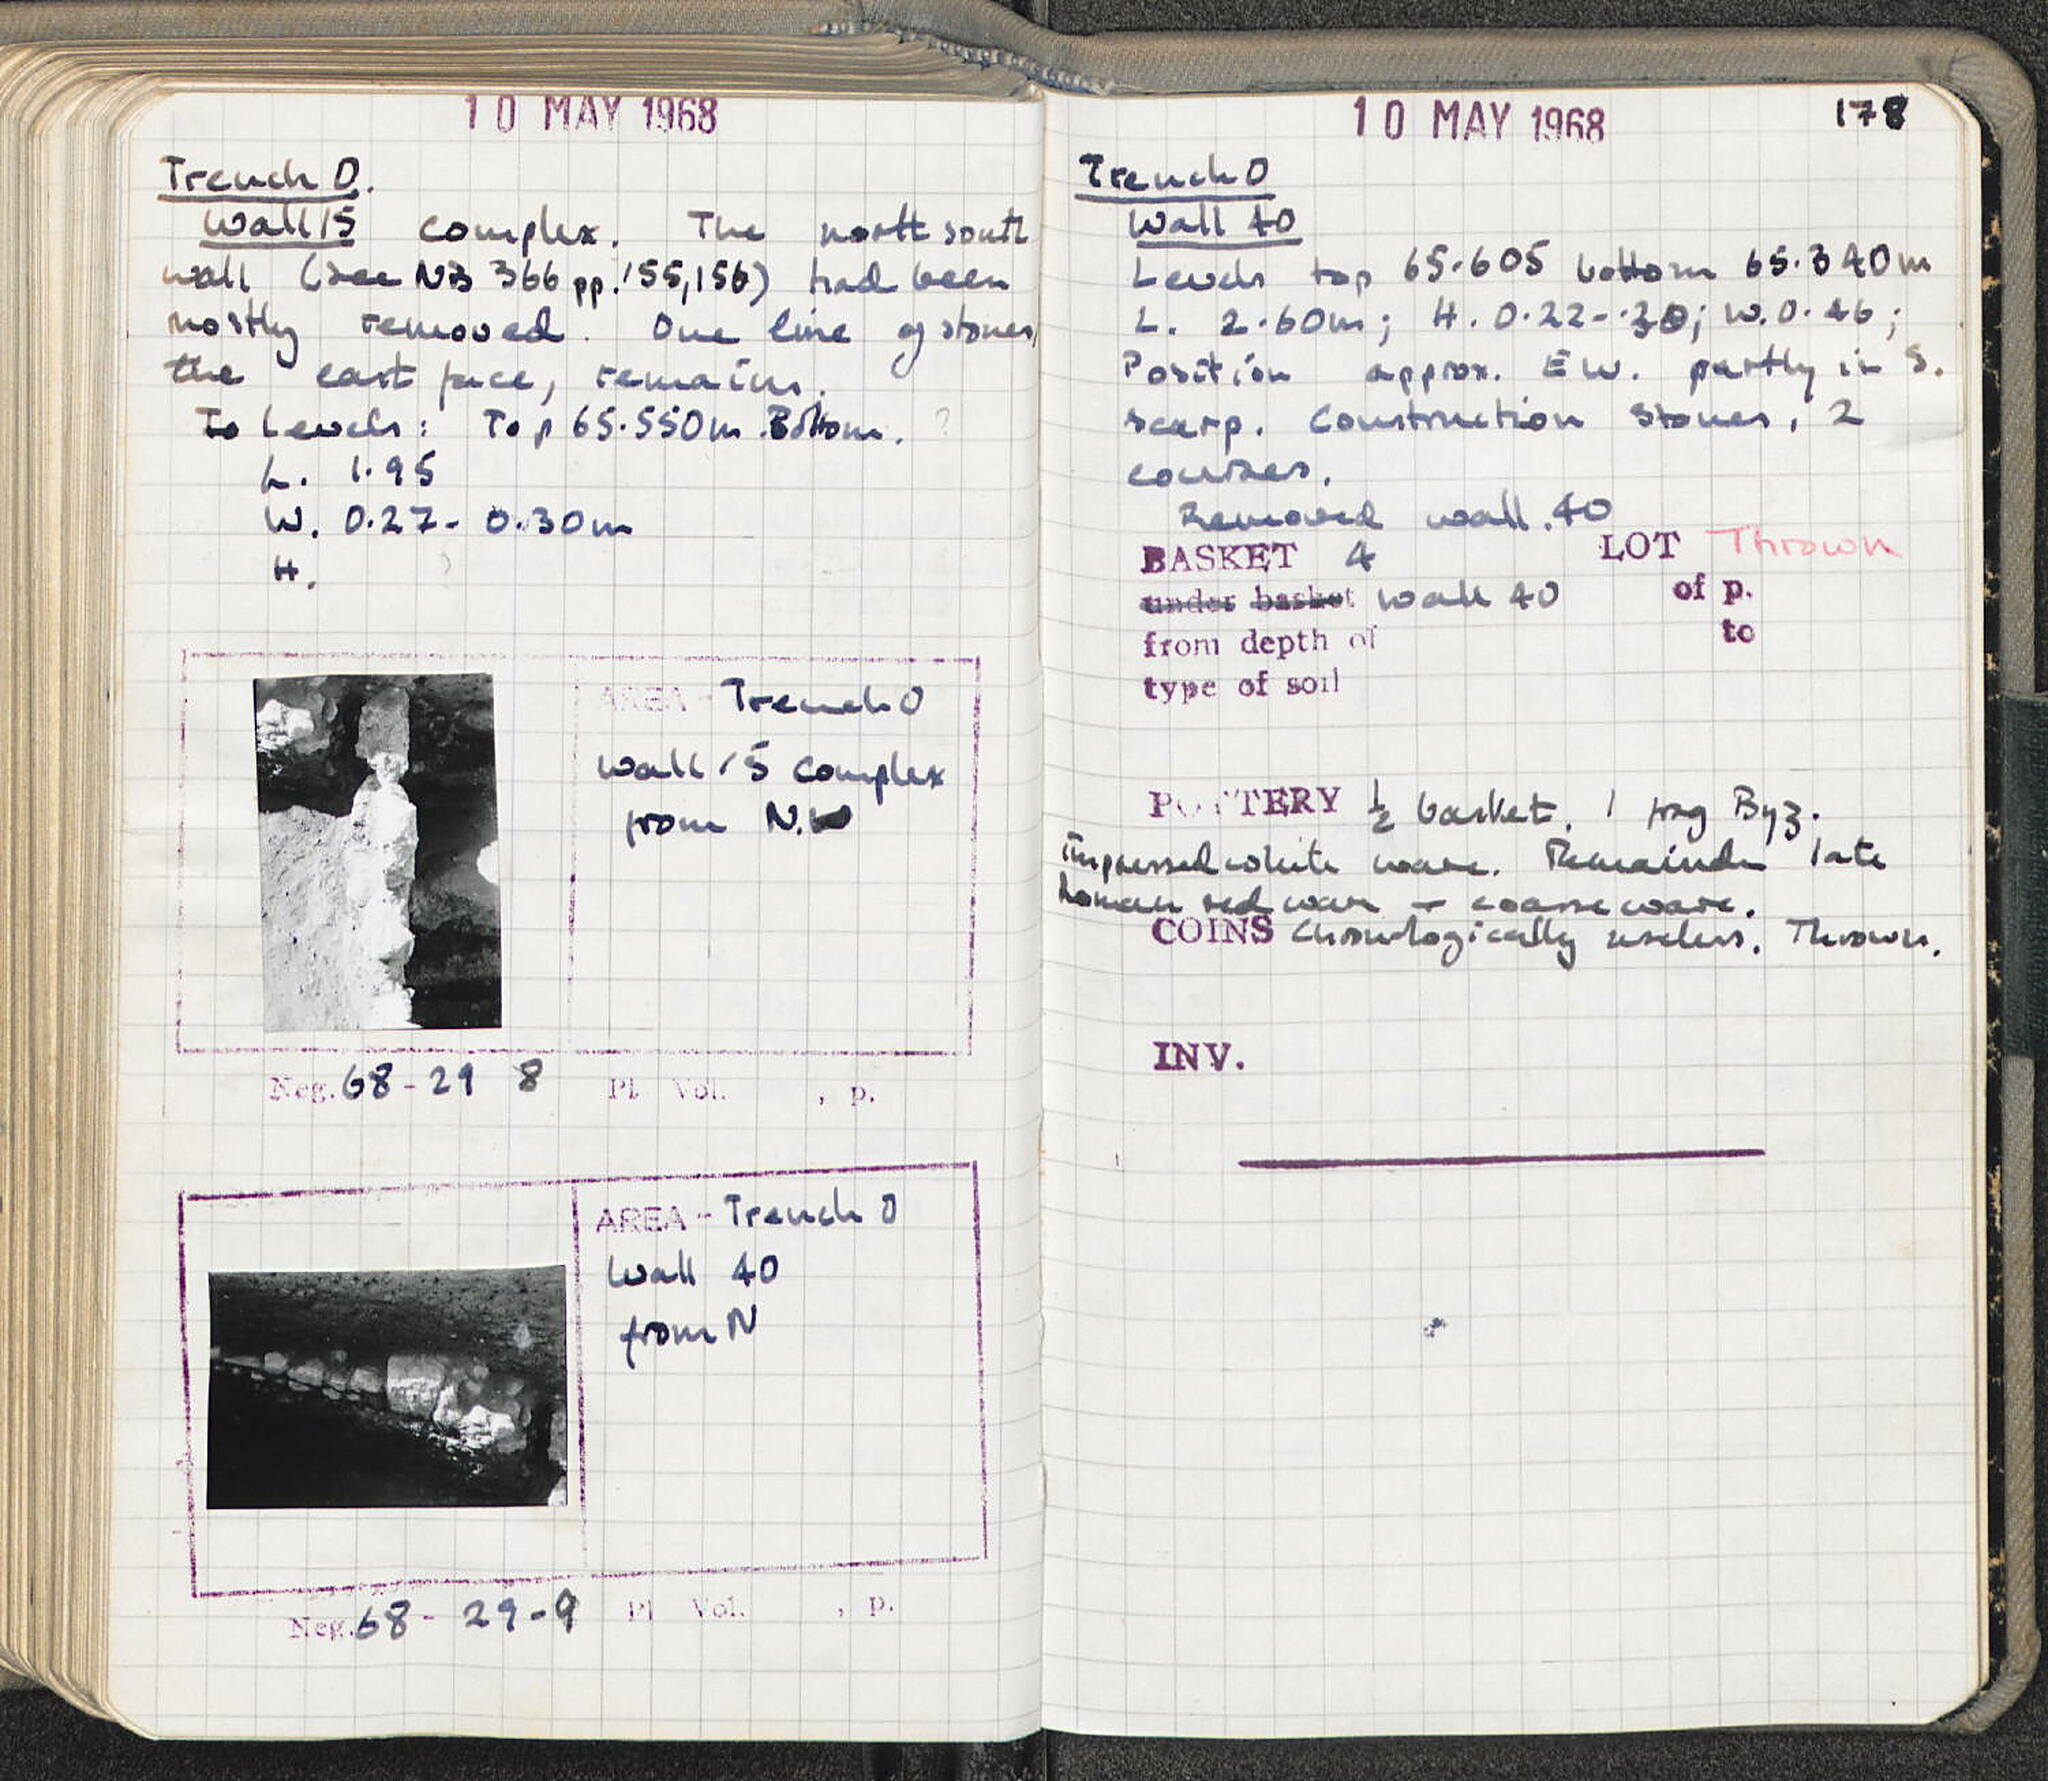 10 MAY 1968
Trench O.
Wall 15 complex. The north south
wall (see NB 366 pp. 155, 156) had been
mostly removed. One line of stones,
the east face, remains.
Levels: Top 65.550m. Bottom. ?
L. 1.95
W. 0.27- 0.30m
H. ?
AREA - Trench O
Wall 15 complex
from N.W
Neg. 68-29 8 Pl. Vol. , p.
AREA - Trench O
Wall 40
from N
Neg. 68- 29-9 Pl. Vol. , p.
10 MAY 1968 178
Trench O
Wall 40
Levels top 65.605 bottom 65.340m
L. 2.60m; H. 0.22-.30; W. 0.46;
Position approx. EW. partly in S.
scarp. Construction stones, 2
courses.
Removed wall. 40
BASKET 4 LOT Thrown
under basket wall 40 of p.
from depth of to
type of soil
POTTERY ½ basket. 1 frag Byz.
impressed white ware. Remainder late
Roman red ware + coarse ware.
COINS Chronologically useless. Thrown.
INV.